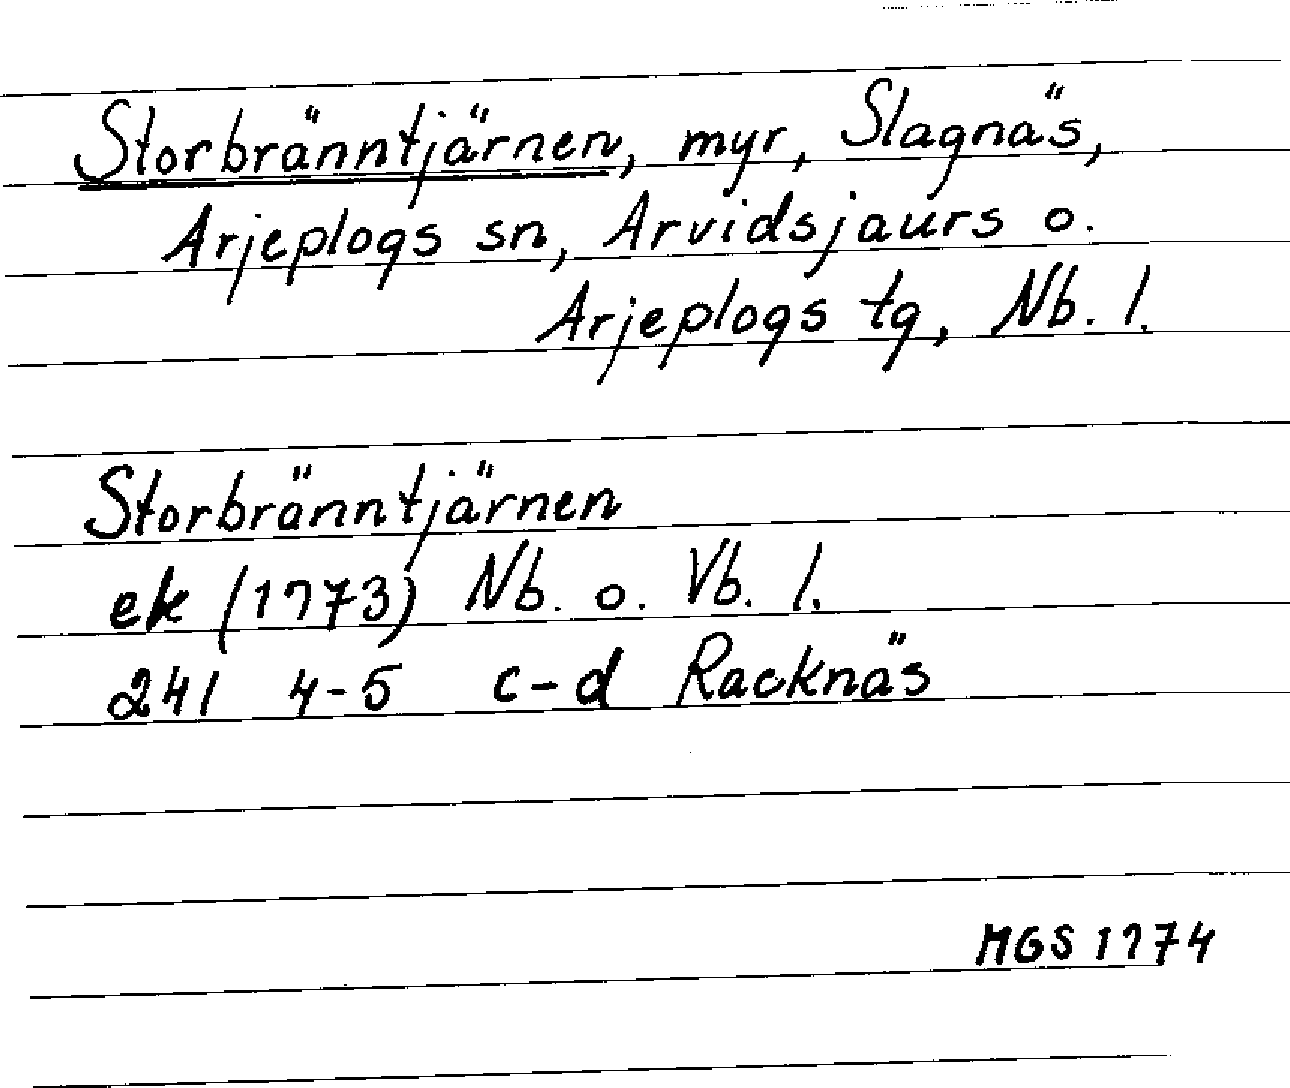 Storbränntjärnen, myr, Slagnäs,
Arjeplogs sn, Arvidsjaurs o.
Arjeplogs tg, Nb. l.
Storbränntjärnen
ek (1973) Nb. o. Vb. l.
241 4-5 c-d Racknäs
MGS 1974